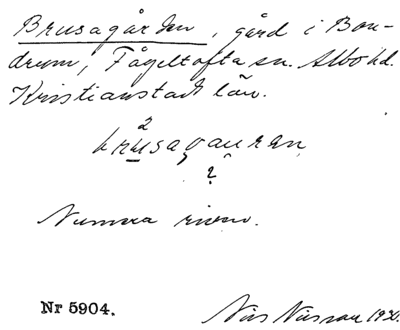 Brusagården, gård i Bon-
drum, Fågeltofta sn. Albo hd.
Kristianstads län.
2
brusagauran
?
Numera riven.
Nr 5904.
Nils Nilsson 1930.